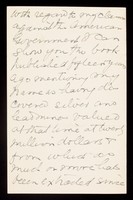 With regard to my claims
against the American
Government I can
show you the book
published fifteen years
ago mentioning my
name as having dis
covered silver and
lead mines valued
at that time at twenty
million dollars &
from which very
much more has
been extracted since